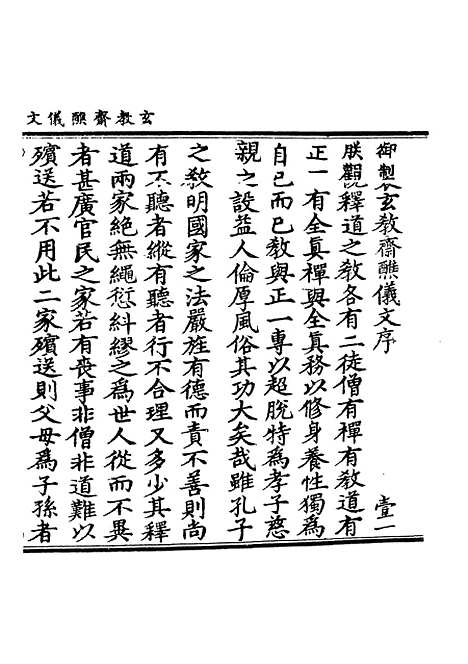 玄教齋醮儀文
御製玄教齋醮儀文序　壹一
朕觀釋道之教各有二徒僧有禪有教道有
正一有全真禪與全真務以修身養性獨為
自己而已教與正一專以超脫特為孝子慈
親之設益人倫厚風俗其功大矣哉雖孔子
之教明國家之法嚴旌有德而責不善則尚
有不聽者縱有聽者行不合理又多少其釋
道兩家絕無繩愆糾繆之為世人從而不異
者甚廣官民之家若有喪事非僧非道難以
殯送若不用此二家殯送則父母為子孫者